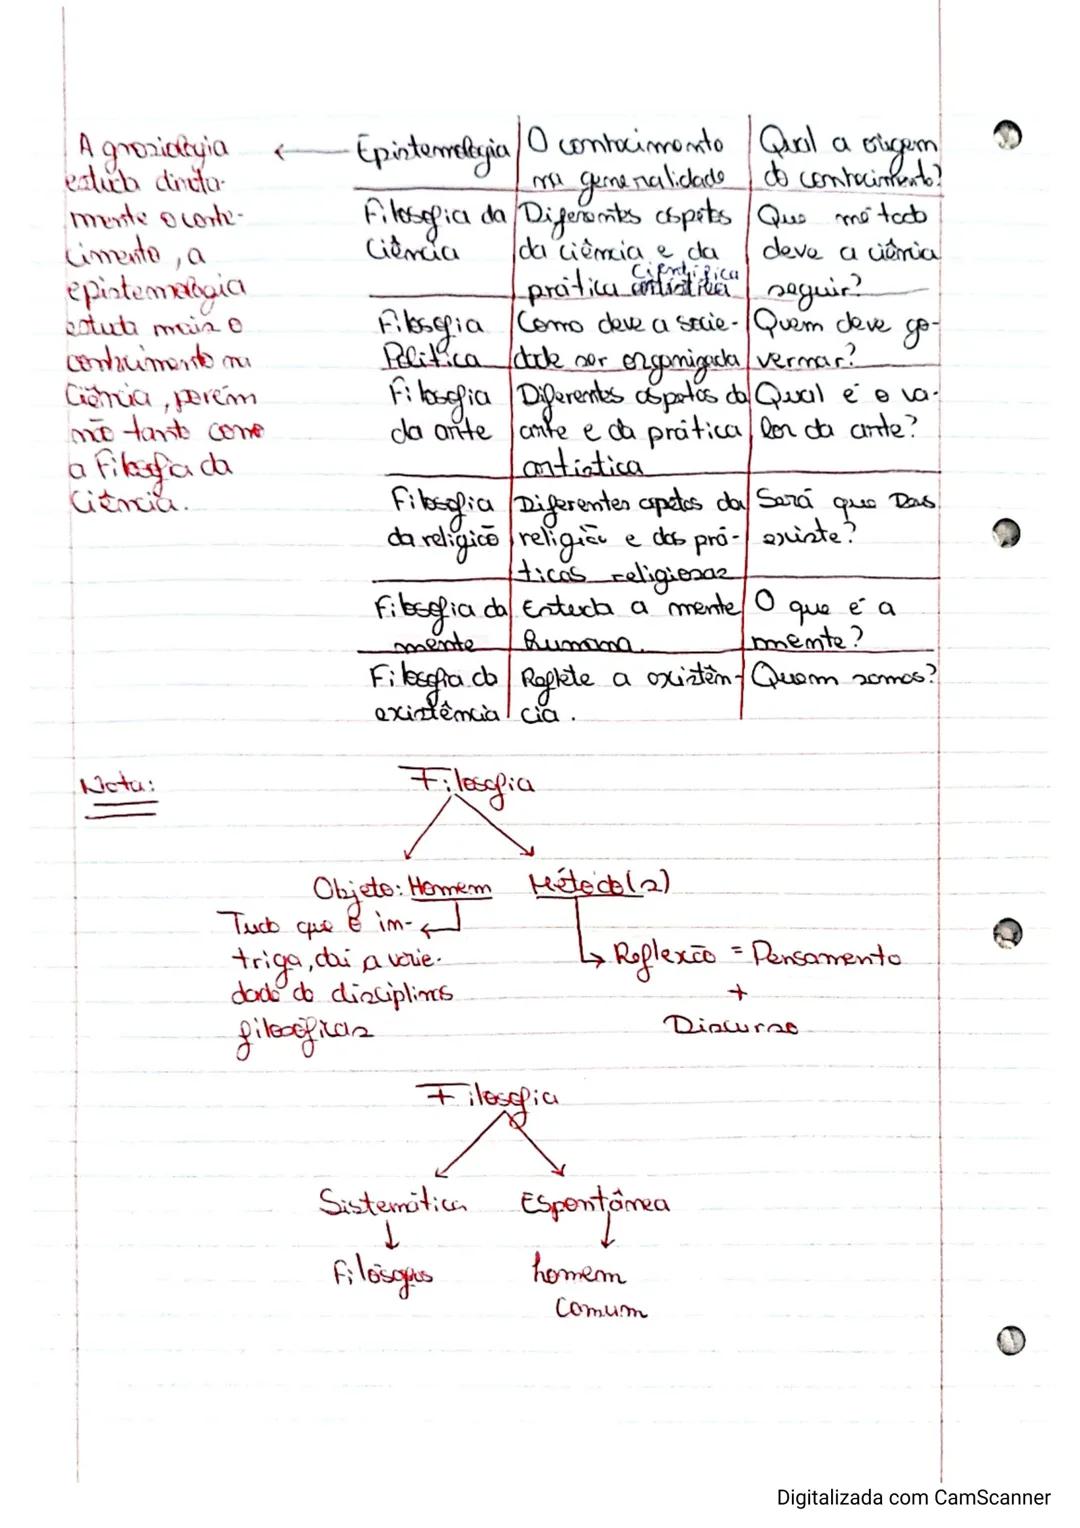 A gnosiologia
estuda direta-
mente o conhe-
cimento, a
epistemologia
estuda mais o
conhecimento na
Ciência, porém
não tanto como
a Filosofia da
Ciência.
← Epistemologia | O conhecimento | Qual a origem
na generalidade | do conhecimento?
Filosofia da | Diferentes aspetos | Que método
Ciência | da ciência e da | deve a ciência
científica
prática artística | seguir?
Filosofia | Como deve a socie- | Quem deve go-
Política | dade ser organizada | vernar?
Filosofia | Diferentes aspetos da | Qual é o va-
da arte | arte e da prática | lor da arte?
artística
Filosofia | Diferentes aspetos da | Será que Deus
da religião | religião e das prá- | existe?
ticas religiosas
Filosofia da | Estuda a mente | O que é a
mente | humana. | mente?
Filosofia da | Reflete a existên- | Quem somos?
existência | cia.
Nota:
Filosofia
Objeto: Homem Método(2)
Tudo que é in-
triga, daí a varie-
dade de disciplinas
filosóficas
↳ Reflexão = Pensamento
+
Discurso
Filosofia
Sistemática Espontânea
↓ ↓
Filósofos homem
comum
Digitalizada com CamScanner